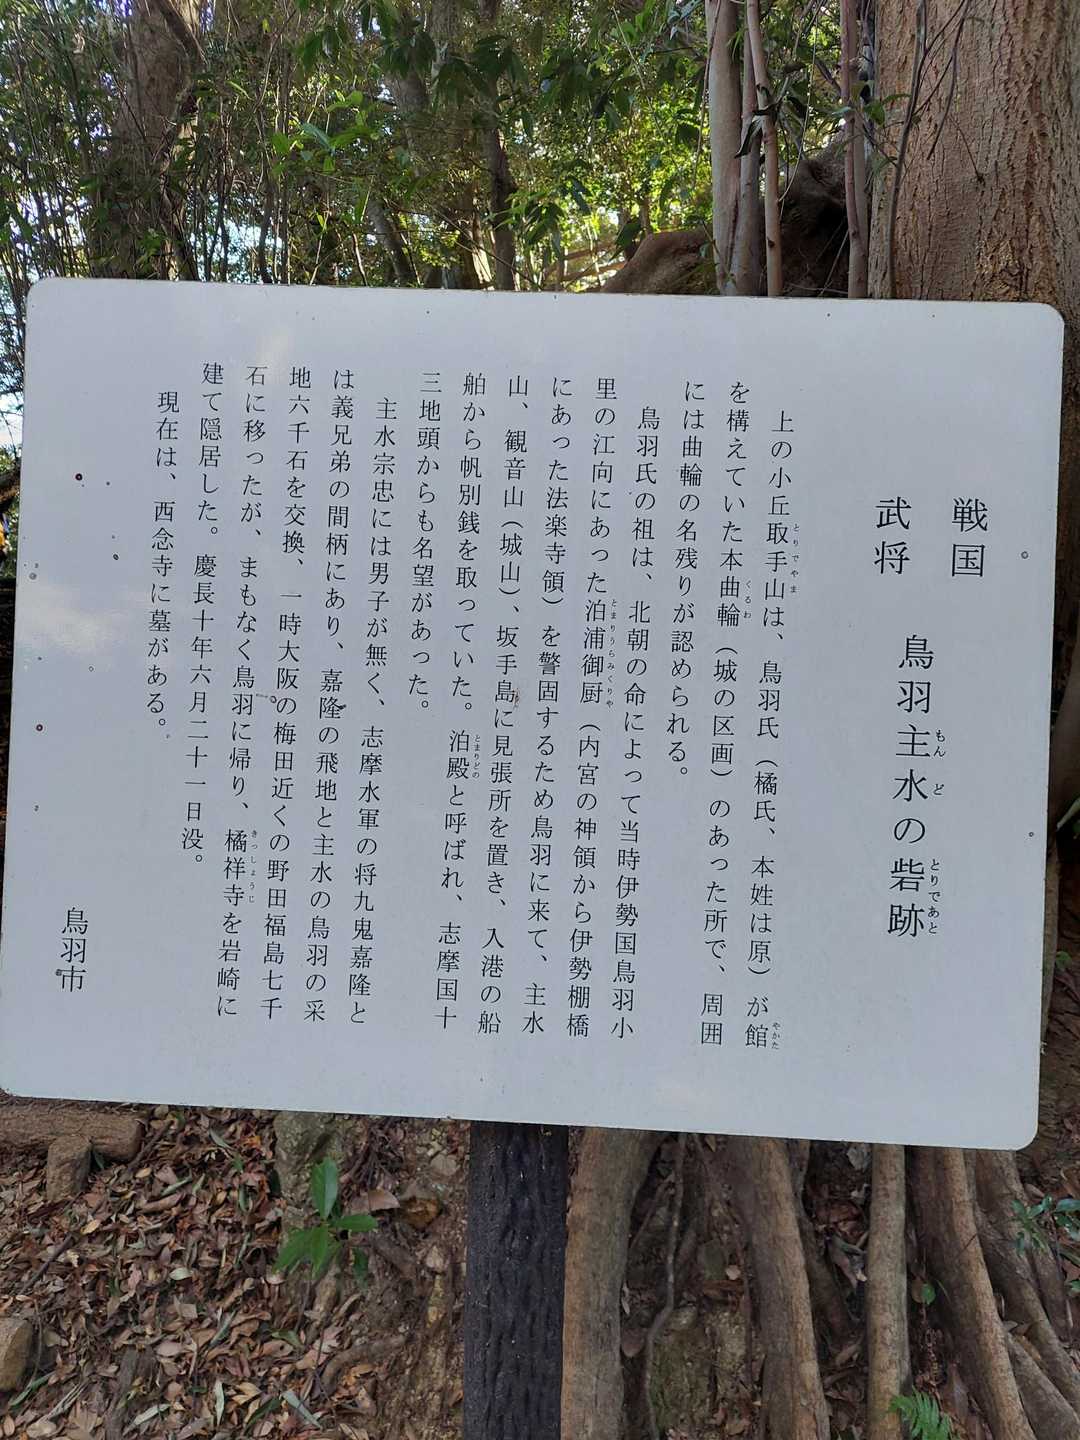 戦国
武将　鳥羽主水の砦跡
もんど
とりであと
上の小丘取手山は、鳥羽氏（橘氏、本姓は原）が館
とりでやま
やかた
を構えていた本曲輪（城の区画）のあった所で、周囲
くるわ
には曲輪の名残りが認められる。
鳥羽氏の祖は、北朝の命によって当時伊勢国鳥羽小
里の江向にあった泊浦御厨（内宮の神領から伊勢棚橋
とまりうらみくりや
にあった法楽寺領）を警固するため鳥羽に来て、主水
山、観音山（城山）、坂手島に見張所を置き、入港の船
舶から帆別銭を取っていた。泊殿と呼ばれ、志摩国十
とまりどの
三地頭からも名望があった。
主水宗忠には男子が無く、志摩水軍の将九鬼嘉隆と
は義兄弟の間柄にあり、嘉隆の飛地と主水の鳥羽の采
地六千石を交換、一時大阪の梅田近くの野田福島七千
石に移ったが、まもなく鳥羽に帰り、橘祥寺を岩崎に
きっしょうじ
建て隠居した。慶長十年六月二十一日没。
現在は、西念寺に墓がある。
鳥羽市